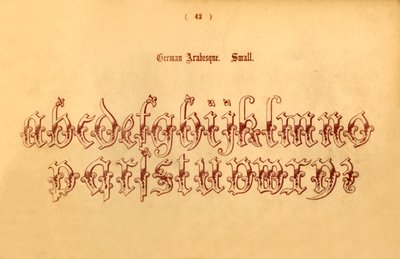 ( 42 )
German Arabesque. Small.
abcdefghijklmno
pqrſstuvwxyz